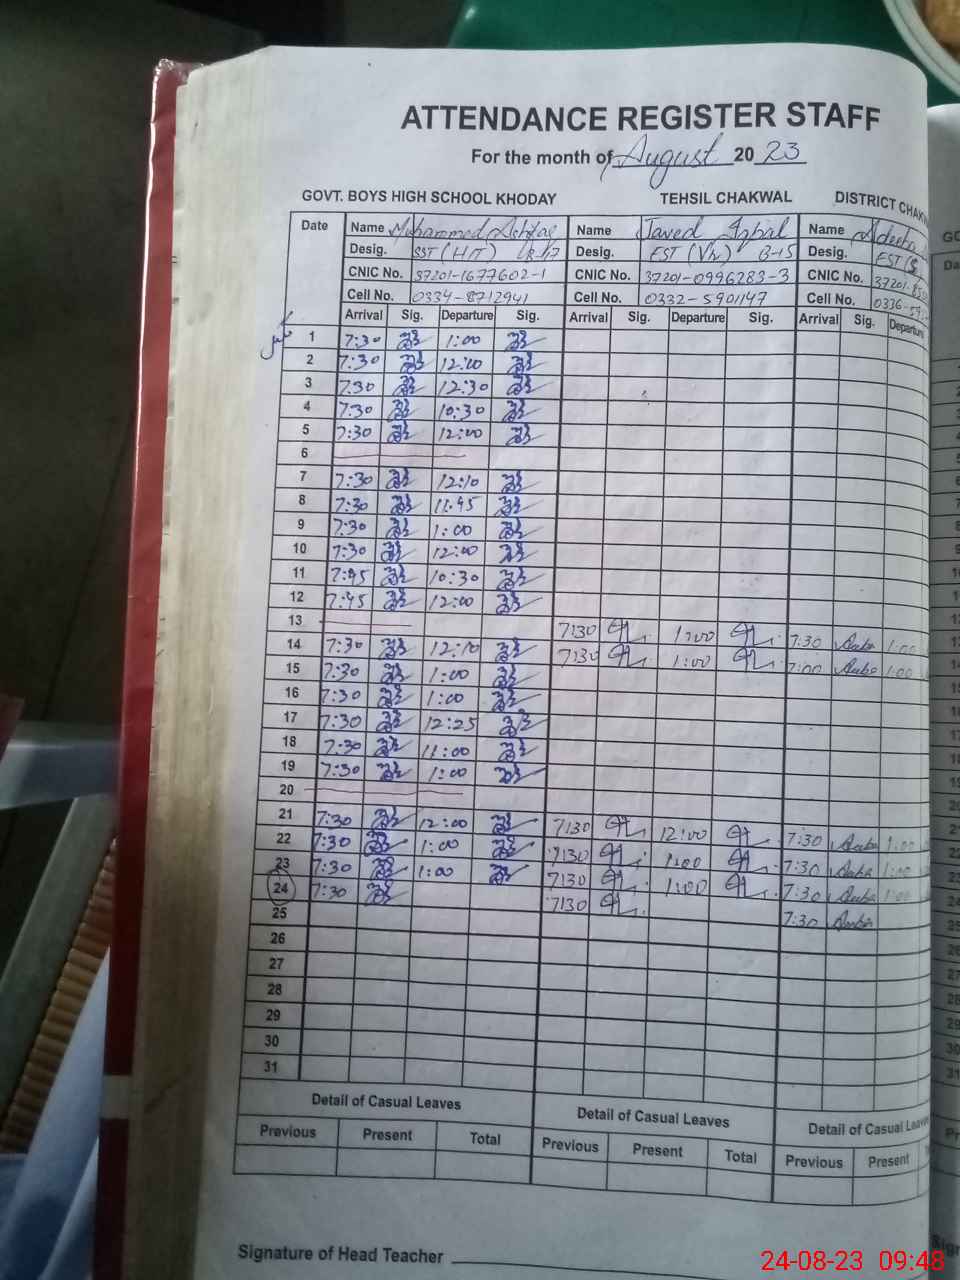 ATTENDANCE REGISTER STAFF
For the month of August 20 23
GOVT. BOYS HIGH SCHOOL KHODAY TEHSIL CHAKWAL DISTRICT CHAKW
Date Name Muhammed Ashfaq Name Javed Iqbal Name
Desig. SST (HT) B-17 Desig. EST (Vr) B-15 Desig. EST (S
CNIC No. 37201-1677602-1 CNIC No. 37201-0996283-3 CNIC No. 37201-850
Cell No. 0334-8712941 Cell No. 0332-5901147 Cell No. 0336-59
Arrival Sig. Departure Sig. Arrival Sig. Departure Sig. Arrival Sig. Departure
1 7:30 1:00
2 7:30 12:00
3 7:30 12:30
4 7:30 10:30
5 7:30 12:00
6
7 7:30 12:10
8 7:30 11:45
9 7:30 1:00
10 7:30 12:00
11 7:45 10:30
12 7:45 12:00
13
14 7:30 12:10 7:30 1:00 7:30 1:00
15 7:30 1:00 7:30 1:00 7:00 1:00
16 7:30 1:00
17 7:30 12:25
18 7:30 11:00
19 7:30 1:00
20
21 7:30 12:00 7:30 12:00 7:30 1:00
22 7:30 1:00 7:30 1:00 7:30 1:00
23 7:30 1:00 7:30 1:00 7:30 1:00
24 7:30 7:30 7:30
25
26
27
28
29
30
31
Detail of Casual Leaves Detail of Casual Leaves Detail of Casual Leave
Previous Present Total Previous Present Total Previous Present
Signature of Head Teacher
24-08-23 09:48